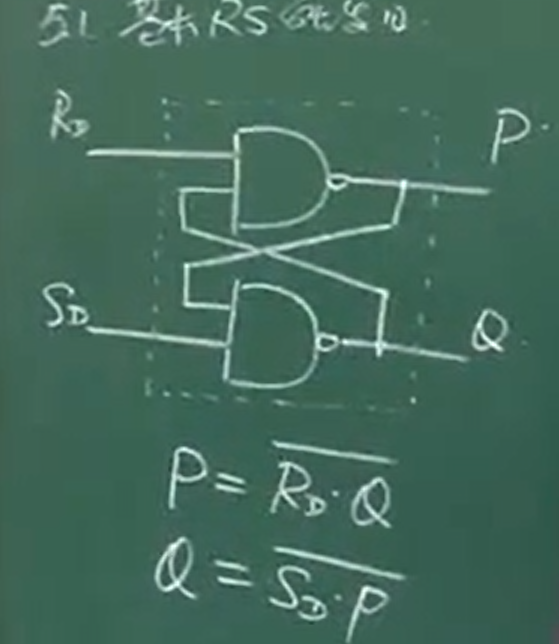 5.1 基本RS触发器
R_D
P
S_D
Q
P = \overline{R_D · Q}
Q = \overline{S_D · P}